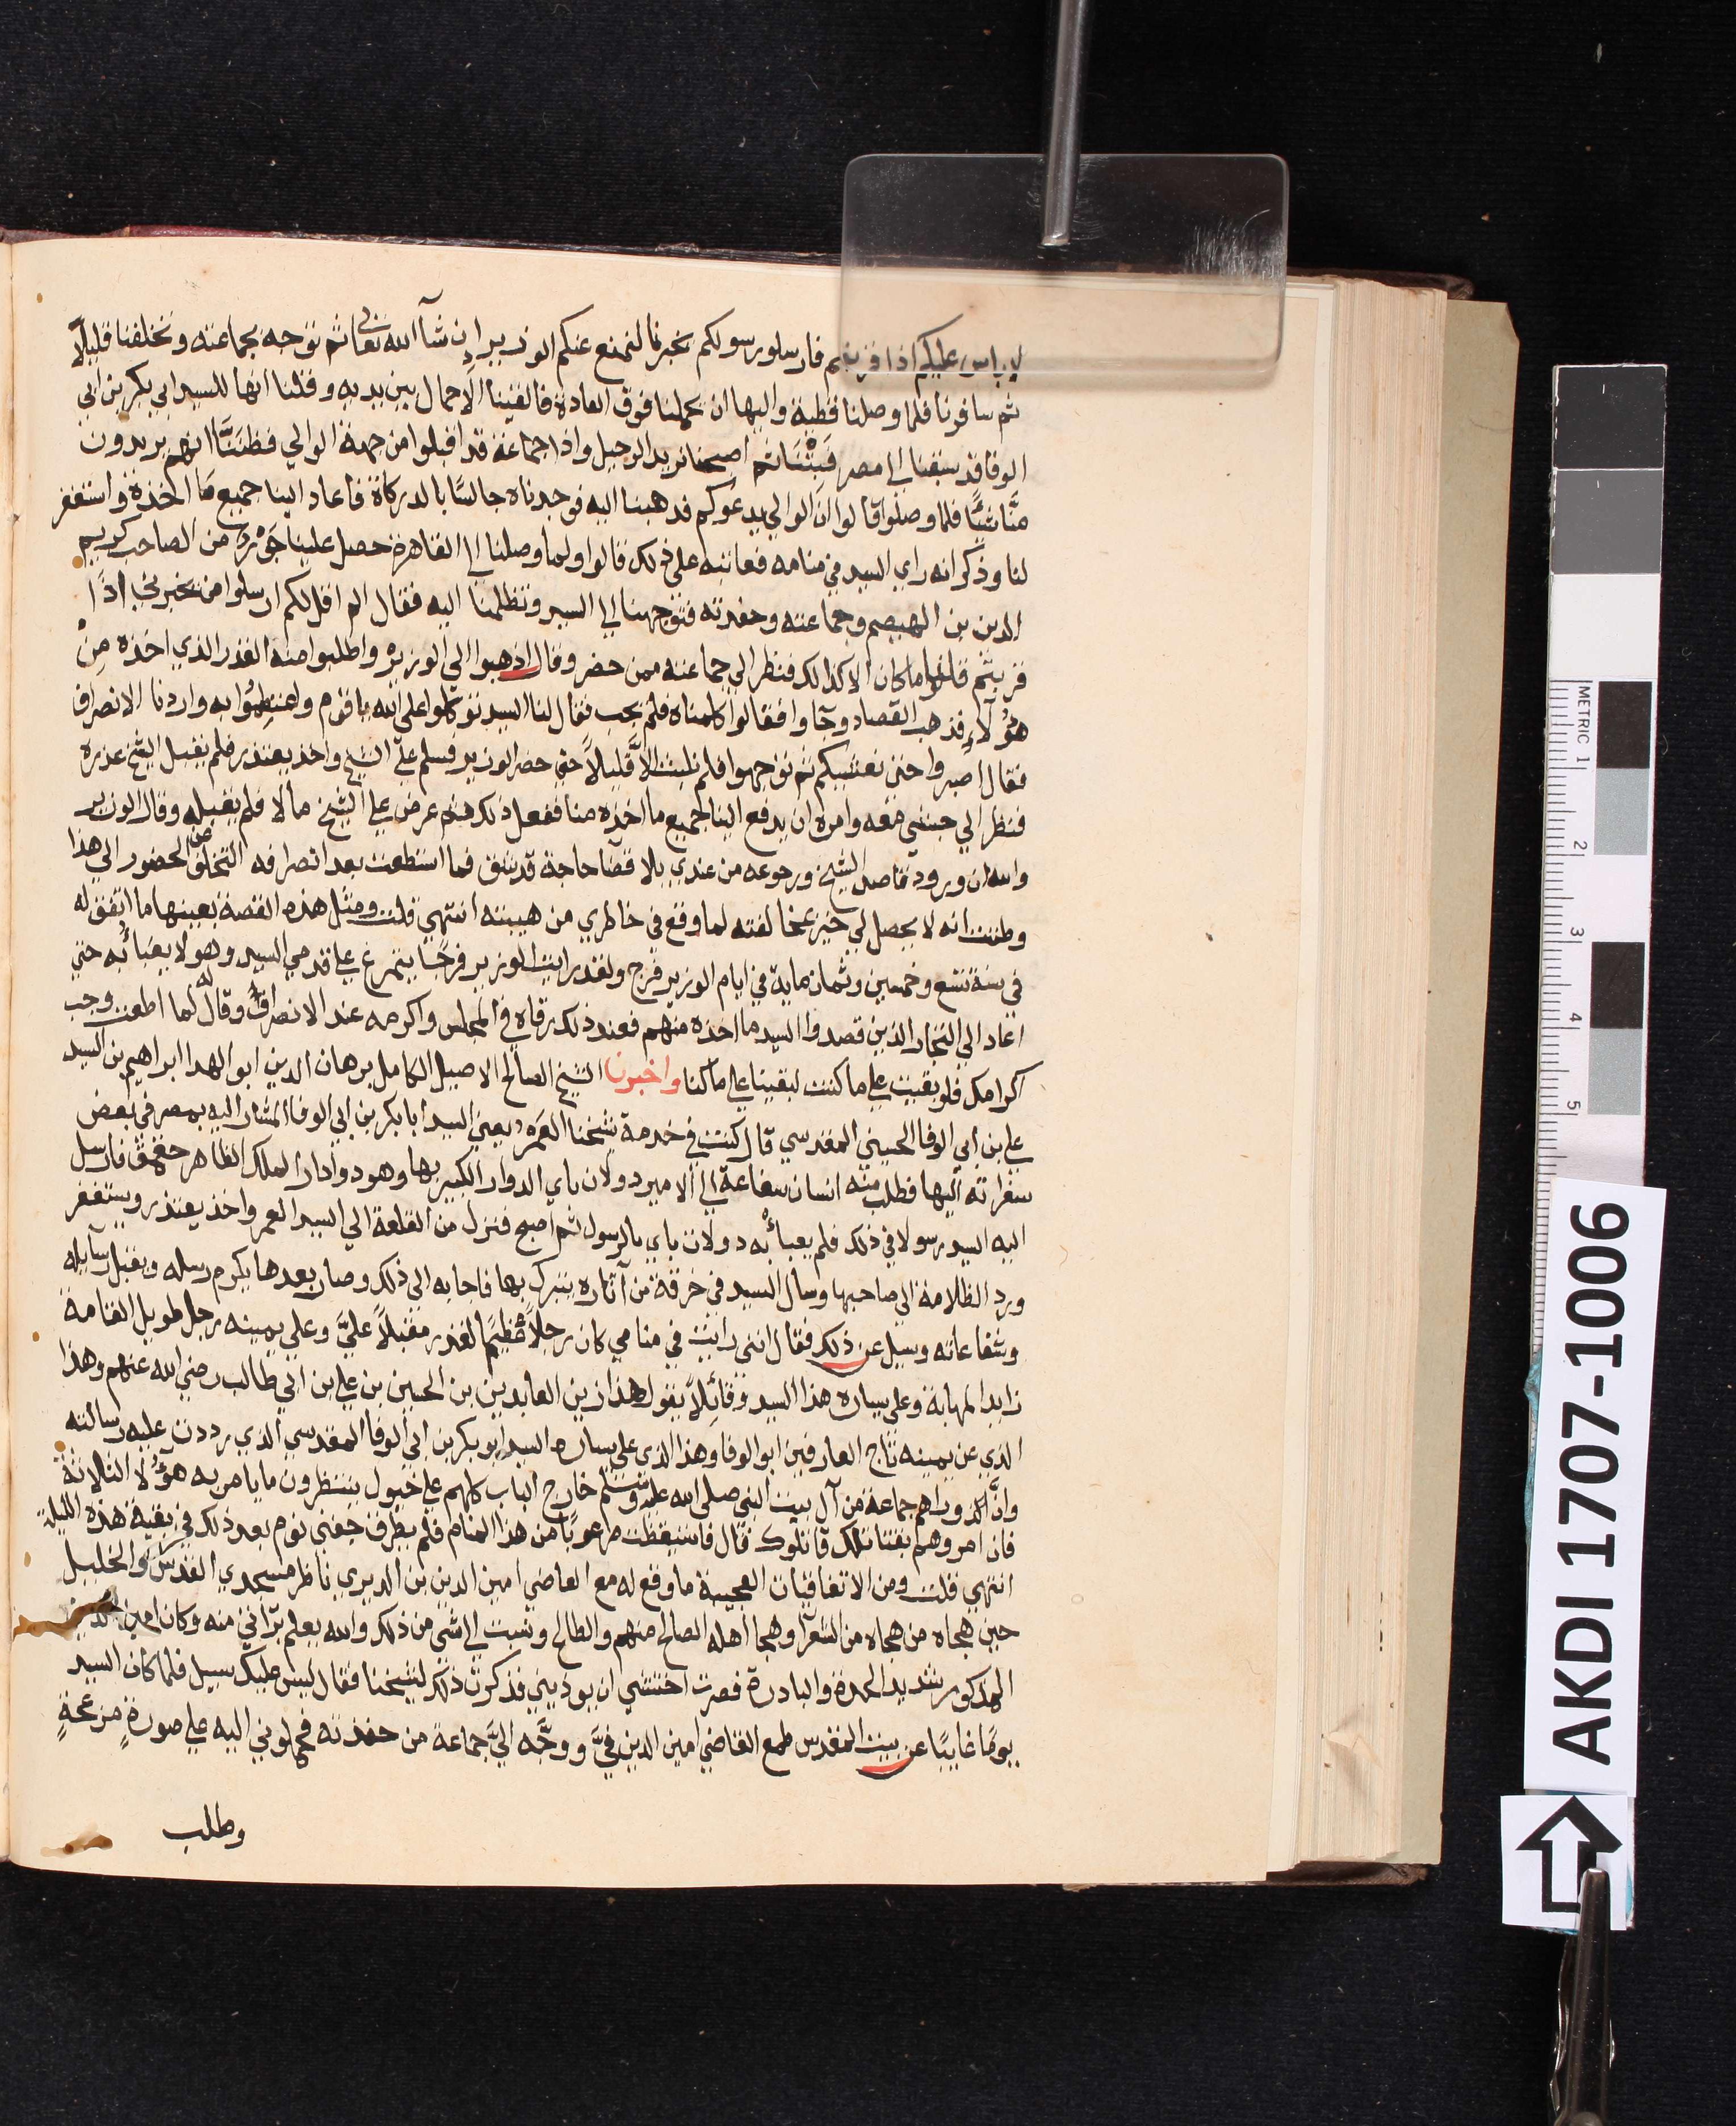 لا باس عليكم اذا قربتم فارسلو رسولكم يخبرنا لنمنع عنكم الوزير ان شآ الله تعالى ثم توجه بجماعته وتخلفنا قليلًا
ثم سافرنا فلما وصلنا قطية واليها ان يحملنا فوق العادة فالفينا الاحمال بين يديه وقلنا انها للسيد ابي بكر بن ابي
الوفا قد سبقنا الى مصر فبتنا ثم اصبحنا نريد الرحيل واذا جماعة قد اقبلوا من جهة الوالي فظننَّا انهم يريدون
منَّا شيًا فلما وصلوا قالوا ان الوالي يدعوكم فذهبنا اليه فوجدناه جالسًا بالدركاة فاعاد الينا جميع ما اخذه واستغفر
لنا وذكر انه راي السيد في منامه فعاتبه على ذلك قالوا ولما وصلنا الى القاهرة حصل علينا جور من الصاحب كريم
الدين بن الهيصم وجماعته وحفدته فتوجهنا الى السيد وتظلمنا اليه فقال الم اقل لكم ارسلوا من يخبرنا اذا
قربتم قلنا ما كان الا كذلك فنظر الي جماعته ممن حضر وقال اذهبوا الي الوزير واطلبوا منه القدر الذي اخذه مِنْ
هؤلآءِ فذهب القصاد وجآوا فقالوا كلمناه فلم يجب فقال لنا السيد توكلوا على الله يا قوم واردنا الانصراف
فقال اصبروا حتى نغديكم ثم توجهوا فلم نلبث الا قليلاً حتى حضر الوزير فسلم على الشيخ واخذ يعتذر فلم يقبل الشيخ عذره
فنظر الي حبشي معه وامره ان يدفع الينا جميع ما اخذه منا ففعل ذلك ثم عرض على الشيخ مالا فلم يقبله وقال الوزير
والله ان ورود قاصد الشيخ ورجوعه من عندي بلا قضآ حاجة قد شق فما استطعت بعد انصرافه التخلف عن الحضور الي هذا
وظننت انه لا يحصل لي خير بمخالفته لما وقع في خاطري من هيبته انتهي قلت ومثل هذه القصة بعينها ما اتفق له
في سنة تسع وخمسين وثمان ماية في ايام الوزير فرج ولقد رايت الوزير فرجًا يتمرغ على قدمي السيد وهو لا يعبأ به حتي
اعاد الي التجار الذين قصدوا السيد ما اخذه منهم فعند ذلك رقاه في المجلس واكرمه عند الانصراف وقال له لما اطعت وجب
اكرامك فلو بقيت علي ما كنت لبقينا على ما كنا واخبرنا الشيخ الصالح الاصيل الكامل برهان الدين ابو الهدا ابراهيم بن السيد
علي بن ابي الوفا الحسيني المقدسي قال كنت في خدمة شيخنا العم يعني السيد ابا بكر بن ابي الوفا المشار اليه بمصر في بعض
سفراته اليها فطلب منه انسان شفاعة الي الامير دولات باي الدوادار الكبير بها وهو دوادار الملك الظاهر جقمق فارسل
اليه السيد رسولا في ذلك فلم يعبأ به دولات باي بالرسول ثم اصبح فنزل من القلعة الي السيد العم واخذ يعتذر ويستغفر
ورد الظلامة الي صاحبها وسال السيد في خرقة من آثاره يتبرك بها فاجابه الى ذلك وصار بعدها يكرم رسله ويقبل رسآيله
وشفاعاته وسيل عن ذلك فقال انني رايت في منامي كان رجلاً عظيم القدر مقبلاً عليَّ وعلي يمينه رجل طويل القامة
زايد المهابة وعلى يساره هذا السيد وقائلًا يقول هذا زين العابدين بن الحسين بن علي بن ابي طالب رضي الله عنهم وهذا
الذي عن يمينه تاج العارفين ابو الوفا وهذا الذي على يساره السيد ابو بكر بن ابي الوفا المقدسي الذي رددت عليه رسالته
وانَّ وراهم جماعة من آل بيت النبي صلى الله عليه وسلم خارج الباب كلهم علي خيول ينتظرون ما يامر به هؤلا الثلاثة
فان امروهم بقتالك قاتلوك قال فاستيقظت مرعوبًا من هذا المنام فلم يطرف جفني نوم بعد ذلك في بقية هذه الليلة
انتهي قلت ومن الاتفاقيات العجيبة ما وقع له مع القاضي امين الدين بن الديري ناظر مسجدي القدس والخليل
حين هجاه من هجاه من الشعرآ وهجا اهله الصالح منهم والطالح ونسبت الي شي من ذلك والله يعلم برآئتي منه وكان امين الدين
المذكور شديد الحدة والبادرة فصرت اختشي ان يوذيني فذكرت ذلك لشيخنا فقال ليس عليك سبيل فلما كان السيد
يومًا غايبًا عن بيت المقدس طمع القاضي امين الدين فيَّ ووجَّه اليَّ جماعة من حفدته فحملوني اليه علي صورة مزعجةٍ
وطلب
AKDI 1707-1006
METRIC 1 2 3 4 5